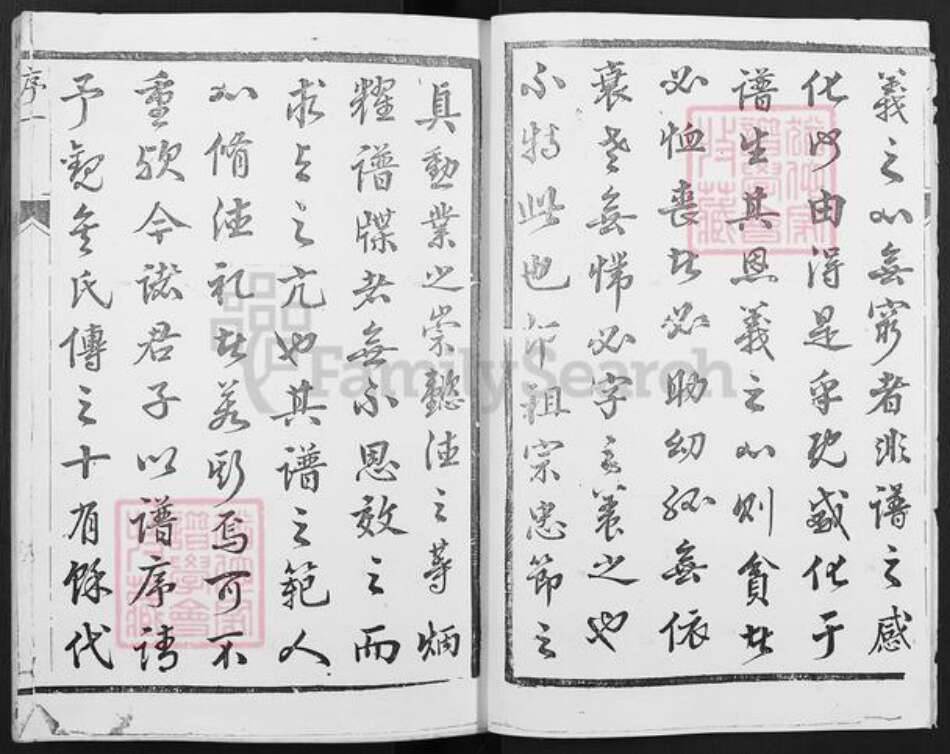 義之心無窮者非譜之感
化何由得是乎既感化于
譜生其恩義之心則貧者
必恤喪者必助幼孤無依
衰老無悌必字之養之也
不特此也即祖宗忠節之
真勳業之崇懿德之尊炳
耀譜牒者無不思效之而
求與之亢也其譜之範人
心脩德礼者若斯焉可不
重歟今諸君子以譜序請
予觀吳氏傳之十有餘代
序一
FamilySearch